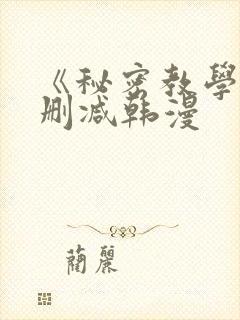 《秘密教學
删减韩漫
蘭麗